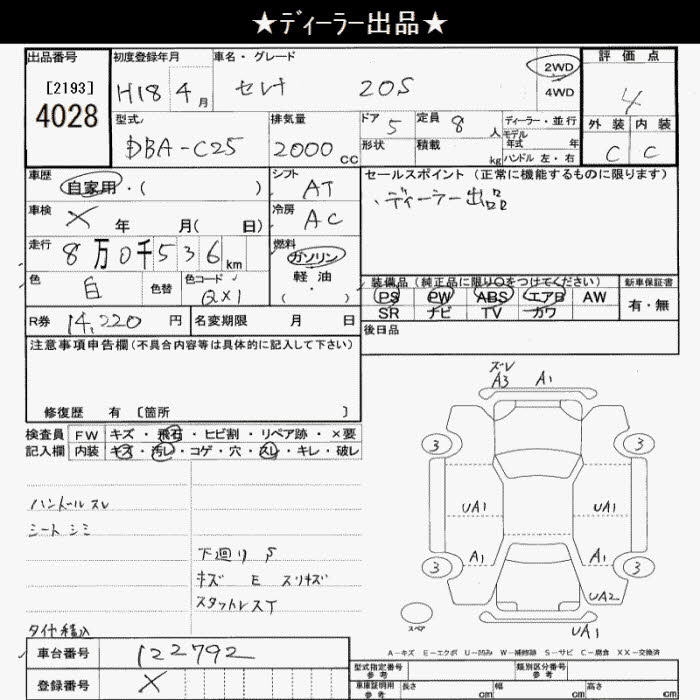 ★ディーラー出品★
出品番号
[2193]
4028
初度登録年月
H18 4月
車名・グレード
セレナ 20S
2WD
4WD
評価点
4
外装 内装
C C
型式
DBA-C25
排気量
2000cc
ドア 5
定員 8人
形状
積載 kg
ディーラー・並行
モデル
年式 年
ハンドル 左・右
車歴
自家用・( )
シフト
AT
セールスポイント(正常に機能するものに限ります)
、ディーラー出品
車検
X 年 月( 日)
冷房
AC
走行
8万0千536km
燃料
ガソリン
軽油
( ・ )
色
白
色替
色コード
QX1
装備品(純正品に限り○をつけてください)
PS PW ABS エアB AW
SR ナビ TV カワ
新車保証書
有・無
R券 14,220円
名変期限 月 日
後日品
注意事項申告欄(不具合内容等は具体的に記入して下さい)
修復歴 有 [箇所 ]
検査員
記入欄
FW キズ・飛石・ヒビ割・リペア跡・×要
内装 キズ・汚レ・コゲ・穴・スレ・キレ・破レ
ハンドルスレ
シートシミ
下廻り S
キズ E スリキズ
スタットレスT
タイヤ積込
ズレ
A3 A1
3 3
UA1 UA1
A1 A1
3 3
UA2
UA1
スペア
A-キズ E-エクボ U-凹み W-補修跡 S-サビ C-腐食 XX-交換済
車台番号 122792
登録番号 X
型式指定番号
参考
類別区分番号
参考
車庫証明用
参考
長さ cm 幅 cm 高さ cm